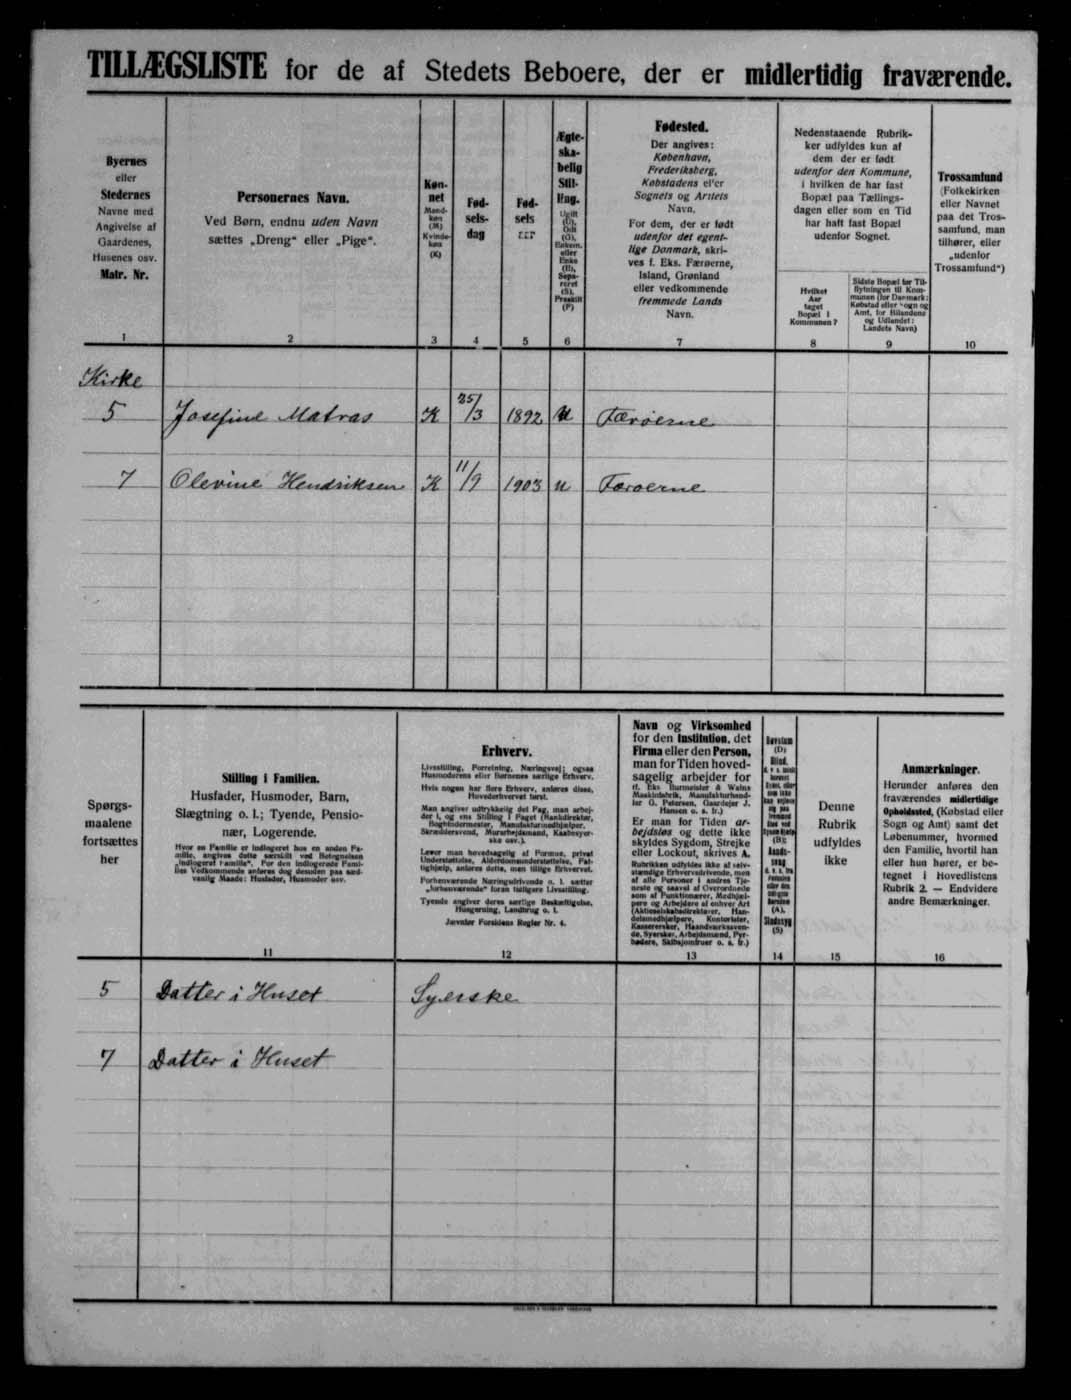 TILLÆGSLISTE for de af Stedets Beboere, der er midlertidig fraværende.
Byernes
eller
Stedernes
Navne med
Angivelse af
Gaardenes,
Husenes osv.
Matr. Nr.
1
Personernes Navn.
Ved Børn, endnu uden Navn
sættes „Dreng“ eller „Pige“.
2
Køn-
net
Mand-
køn
(M)
Kvinde-
køn
(K)
3
Fød-
sels-
dag
4
Fød-
sels
5
Ægte-
ska-
belig
Stil-
ling.
Ugift
(U),
Gift
(G),
Enkem.
eller
Enke
(E),
Sepa-
reret
(S),
Fraskilt
(F)
6
Fødested.
Der angives:
København,
Frederiksberg,
Købstadens eller
Sognets og Amtets
Navn.
For dem, der er født
udenfor det egent-
lige Danmark, skri-
ves f. Eks. Færøerne,
Island, Grønland
eller vedkommende
fremmede Lands
Navn.
7
Nedenstaaende Rubrik-
ker udfyldes kun af
dem der er født
udenfor den Kommune,
i hvilken de har fast
Bopæl paa Tællings-
dagen eller som en Tid
har haft fast Bopæl
udenfor Sognet.
Hvilket
Aar
taget
Bopæl i
Kommunen?
8
Sidste Bopæl før Til-
flytningen til Kom-
munen (for Danmark:
Købstad eller Sogn og
Amt, for Bilandene
og Udlandet:
Landets Navn)
9
Trossamfund
(Folkekirken
eller Navnet
paa det Tros-
samfund, man
tilhører, eller
„udenfor
Trossamfund“)
10
Kirke
5 Josefine Matras K 25/3 1892 U Færöerne
7 Olevine Hendriksen K 11/9 1903 U Færoerne
Spørgs-
maalene
fortsættes
her
Stilling i Familien.
Husfader, Husmoder, Barn,
Slægtning o. l.; Tyende, Pensio-
nær, Logerende.
Hvor en Familie er indlogeret hos en anden Fa-
milie, angives dette særskilt ved Betegnelsen
„indlogeret Familie“. For den indlogerede Fami-
lies Vedkommende angives dog desuden paa sæd-
vanlig Maade: Husfader, Husmoder osv.
11
Erhverv.
Livsstilling, Forretning, Næringsvej; ogsaa
Husmoderens eller Børnenes særlige Erhverv.
Hvis nogen har flere Erhverv, anføres disse,
Hovederhvervet først.
Man angiver udtrykkelig det Fag, man arbej-
der i, og ens Stilling i Faget (Bankdirektør,
Bogbindermester, Manufakturmedhjælper,
Skræddersvend, Murarbejdsmand, Kaabesyer-
ske osv.).
Lever man hovedsagelig af Formue, privat
Understøttelse, Alderdomsunderstøttelse, Fat-
tighjælp, anføres dette, men tillige Erhvervet.
Forhenværende Næringsdrivende o. l. sætter
„forhenværende“ foran tidligere Livsstilling.
Tyende angiver deres særlige Beskæftigelse,
Husgerning, Landbrug o. l.
Jævnfør Forsidens Regler Nr. 4.
12
Navn og Virksomhed
for den Institution, det
Firma eller den Person,
man for Tiden hoved-
sagelig arbejder for
(f. Eks Burmeister & Wains
Maskinfabrik, Manufakturhand-
ler O. Petersen, Gaardejer J.
Hansen o. s. fr.)
Er man for Tiden ar-
bejdsløs og dette ikke
skyldes Sygdom, Strejke
eller Lockout, skrives A.
Rubrikken udfyldes ikke af selv-
stændige Erhvervsdrivende, men
af alle Personer i andres Tje-
neste og saavel af Overordnede
som af Funktionærer, Medhjæl-
pere og Arbejdere af enhver Art
(Aktieselskabsdirektører, Han-
delsmedhjælpere, Kontorister,
Kasserersker, Haandværkssven-
de, Syersker, Arbejdsmænd, Fyr-
bødere, Skibsjomfruer o. s. fr.)
13
Døvstum
(D)
Blind,
(B);
Aands-
svag
(A),
Sindssyg
(S)
14
Denne
Rubrik
udfyldes
ikke
15
Anmærkninger.
Herunder anføres den
fraværendes midlertidige
Opholdssted, (Købstad eller
Sogn og Amt) samt det
Løbenummer, hvormed
den Familie, hvortil han
eller hun hører, er be-
tegnet i Hovedlistens
Rubrik 2. — Endvidere
andre Bemærkninger.
16
5 Datter i Huset Syerske
7 Datter i Huset